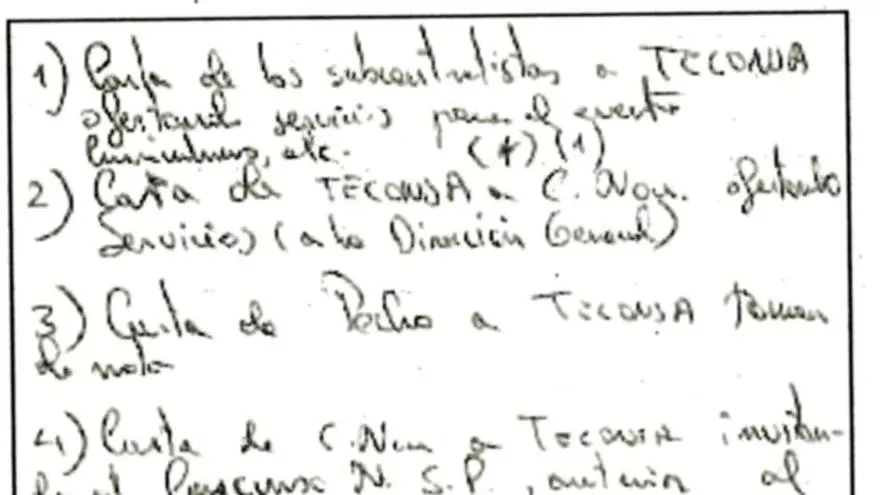 1) Carta de los subcontratistas a TECONSA
ofertando servicios para el evento
curriculums, etc. (*) (1)
2) Carta de TECONSA a C. Nou. ofertando
Servicios (a la Dirección General)
3) Carta de Pedro a TECONSA toman
de nota
4) Carta de C. Nou a TECONSA invitan-
do al Concurso N. S. P., anterior al